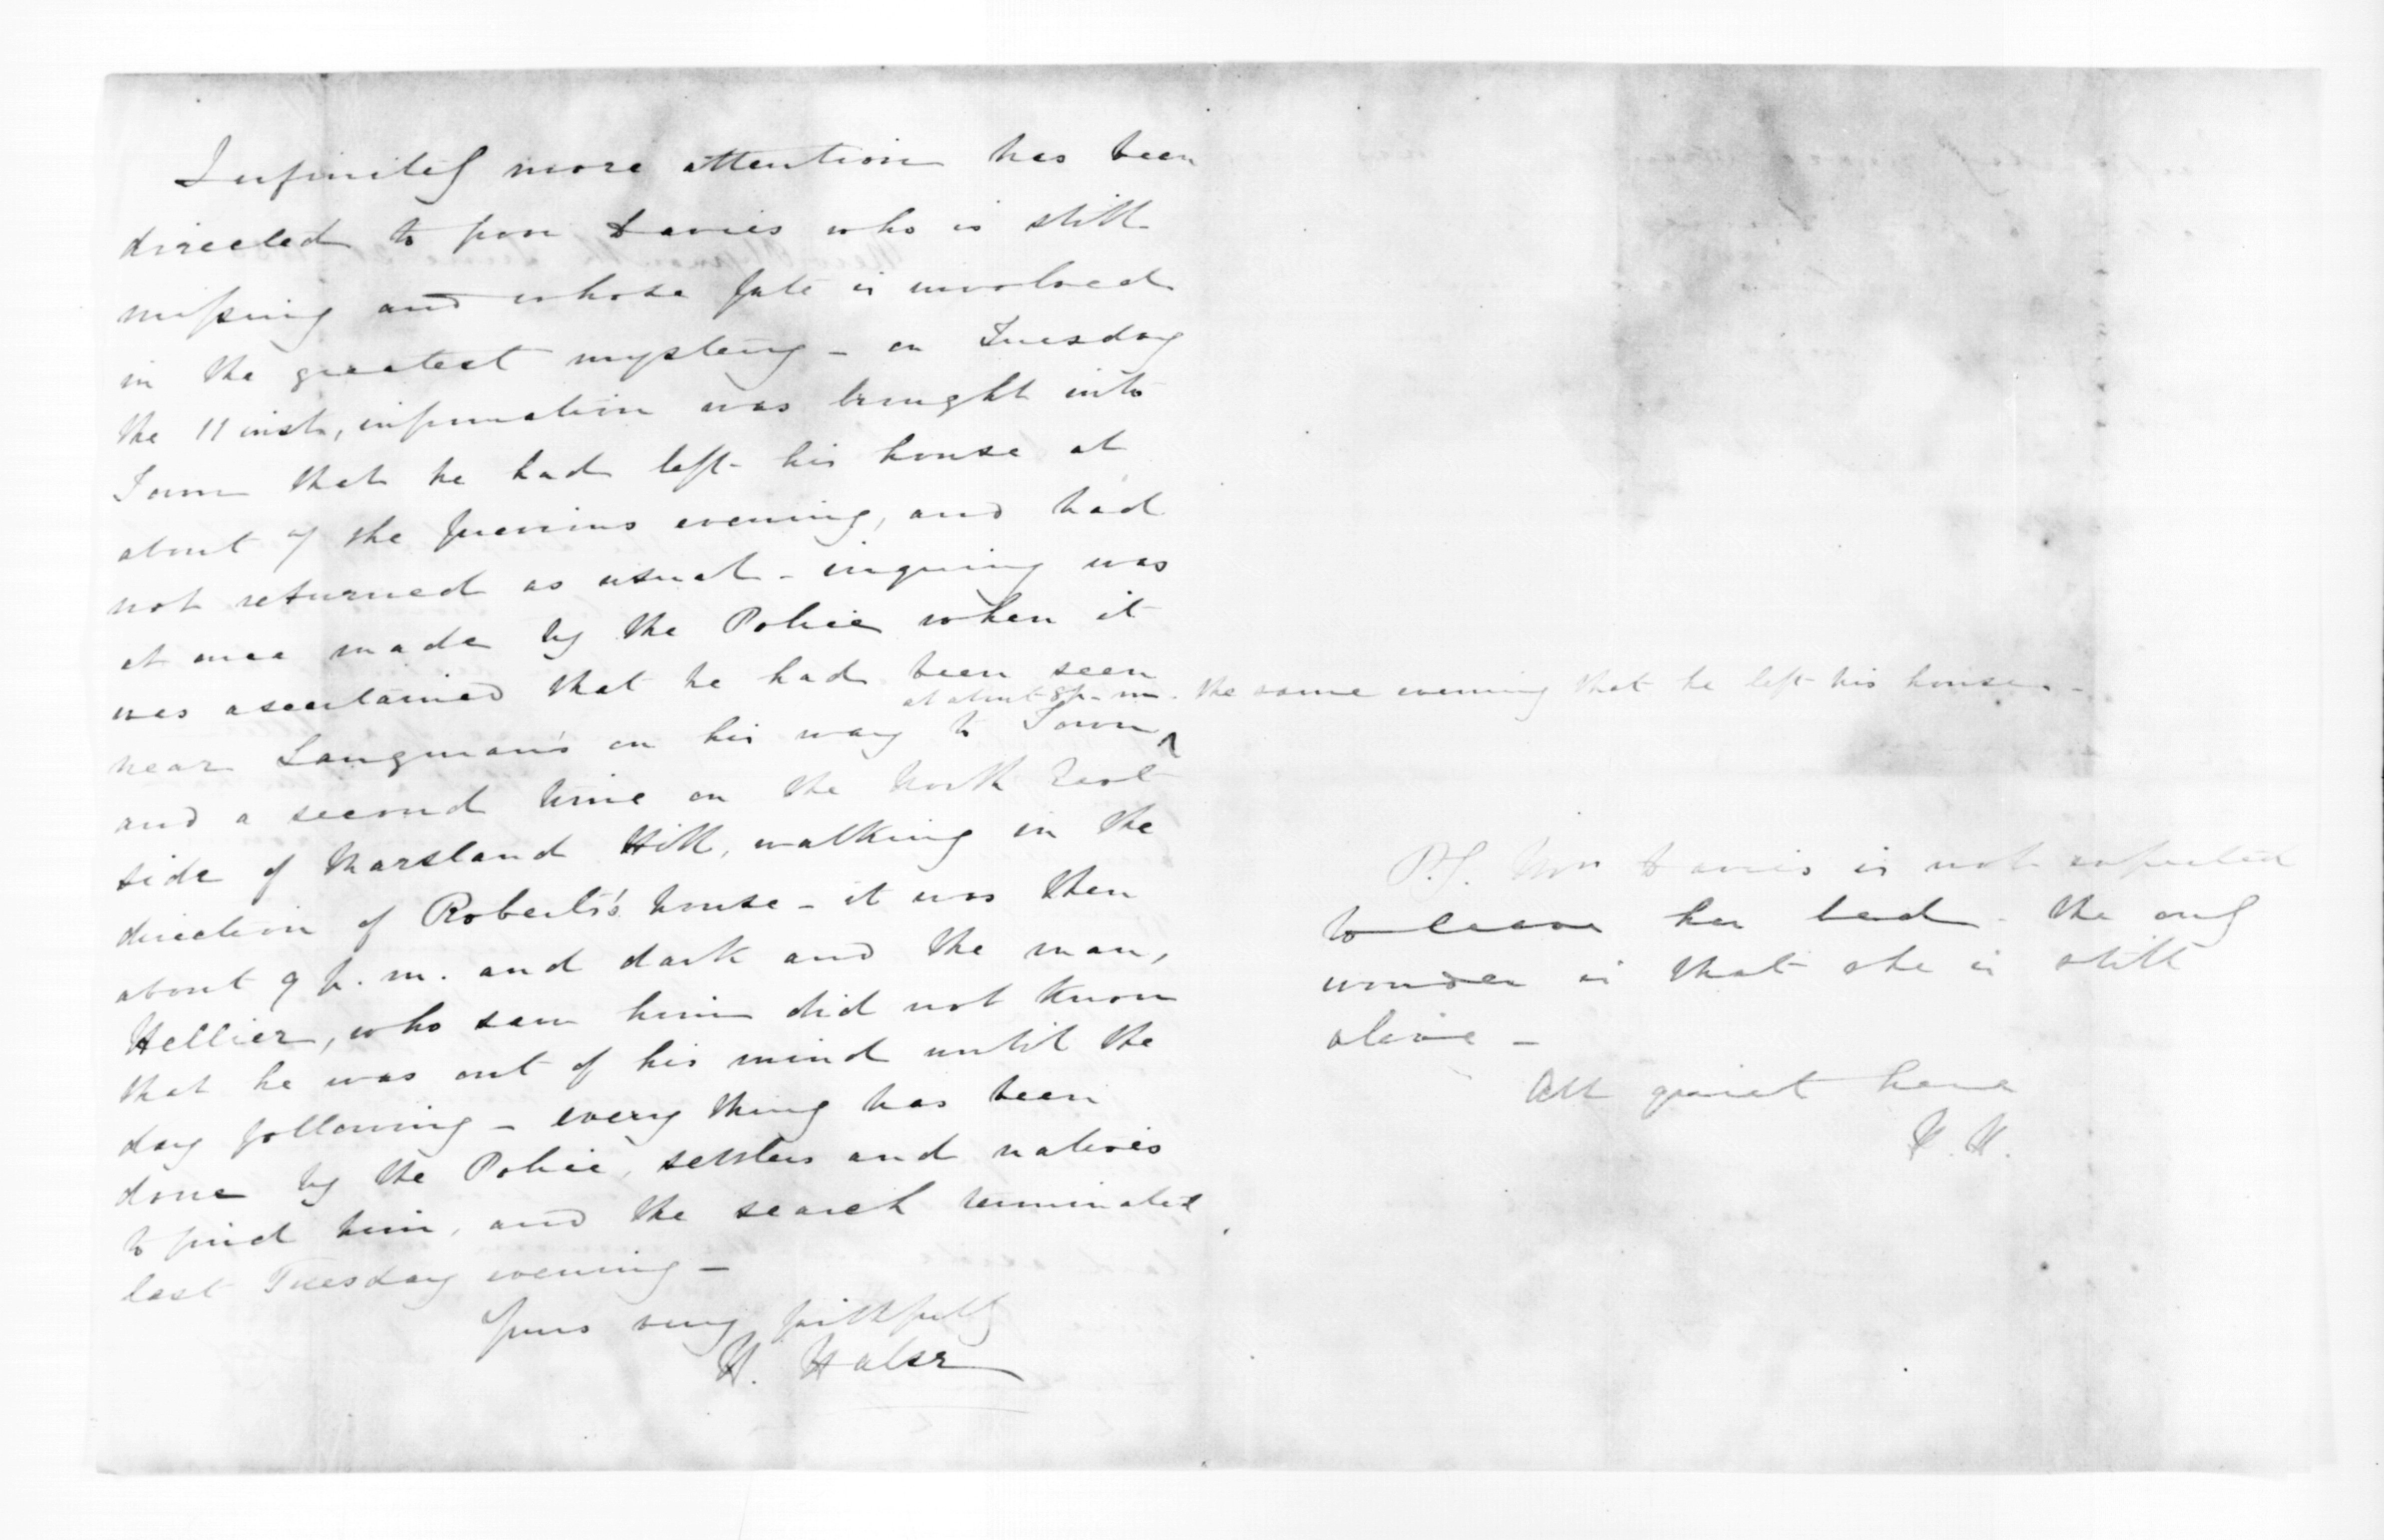 Infinitely more attention has been
directed to poor Davies who is still
missing and whose fate is involved
in the greatest mystery - on Tuesday
the 11 inst, information was brought into
Town that he had left his house at
about 7 the previous evening, and had
not returned as usual - inquiry was
at once made by the Police when it
was ascertained that he had been seen
near Langman's on his way to Town
at about 8 p.m. the same evening that he left his house -
and a second time on the North East
side of Marsland Hill, walking in the
direction of Roberts's house - it was then
about 9 p.m. and dark and the man,
Hellier, who saw him did not know
that he was out of his mind until the
day following - every thing has been
done by the Police, settlers and natives
to find him, and the search terminated
last Tuesday evening -
Yours very faithfully
H. Halse
P.S. Mrs Davies is not expected
to leave her bed - the only
wonder is that she is still
alive -
All quiet here
H. H.